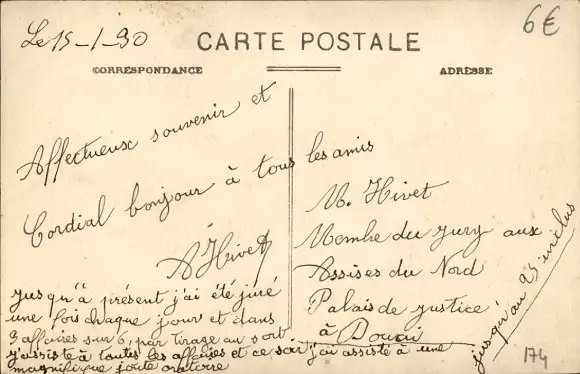 Le 15-1-30
6€
CARTE POSTALE
CORRESPONDANCE
ADRESSE
Affectueux souvenir et
Cordial bonjour à tous les amis
AHivet
Jusqu'à présent j'ai été juré
une fois chaque jour et dans
3 affaires sur 6, par tirage au sort
j'assiste à toutes les affaires et ce soir j'ai assisté à une
magnifique joute oratoire
M. Hivet
Membre du jury aux
Assises du Nord
Palais de justice
à Douai
jusqu'au 25 inclus
174